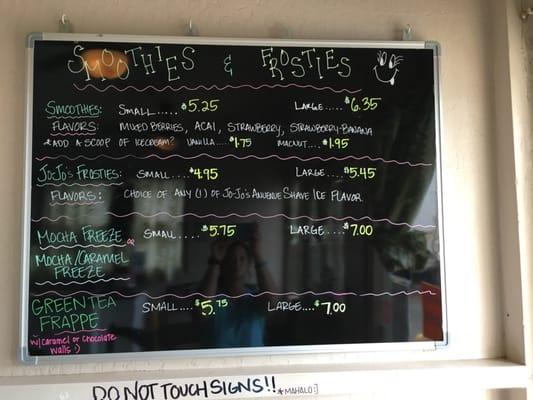 SMOOTHIES & FROSTIES
SMOOTHIES: SMALL.....$5.25 LARGE....$6.35
FLAVORS: MIXED BERRIES, ACAI, STRAWBERRY, STRAWBERRY-BANANA
*ADD A SCOOP OF ICECREAM? VANILLA....$1.75 MACNUT....$1.95
JO-JO'S FROSTIES: SMALL....$4.95 LARGE....$5.45
FLAVORS: CHOICE OF ANY (1) OF JO-JO'S ANUENUE SHAVE ICE FLAVOR
MOCHA FREEZE or SMALL....$5.75 LARGE....$7.00
MOCHA/CARAMEL
FREEZE
GREEN TEA SMALL....$5.75 LARGE....$7.00
FRAPPE
w/ caramel or chocolate
walls :)
DO NOT TOUCH SIGNS!! *MAHALO :)